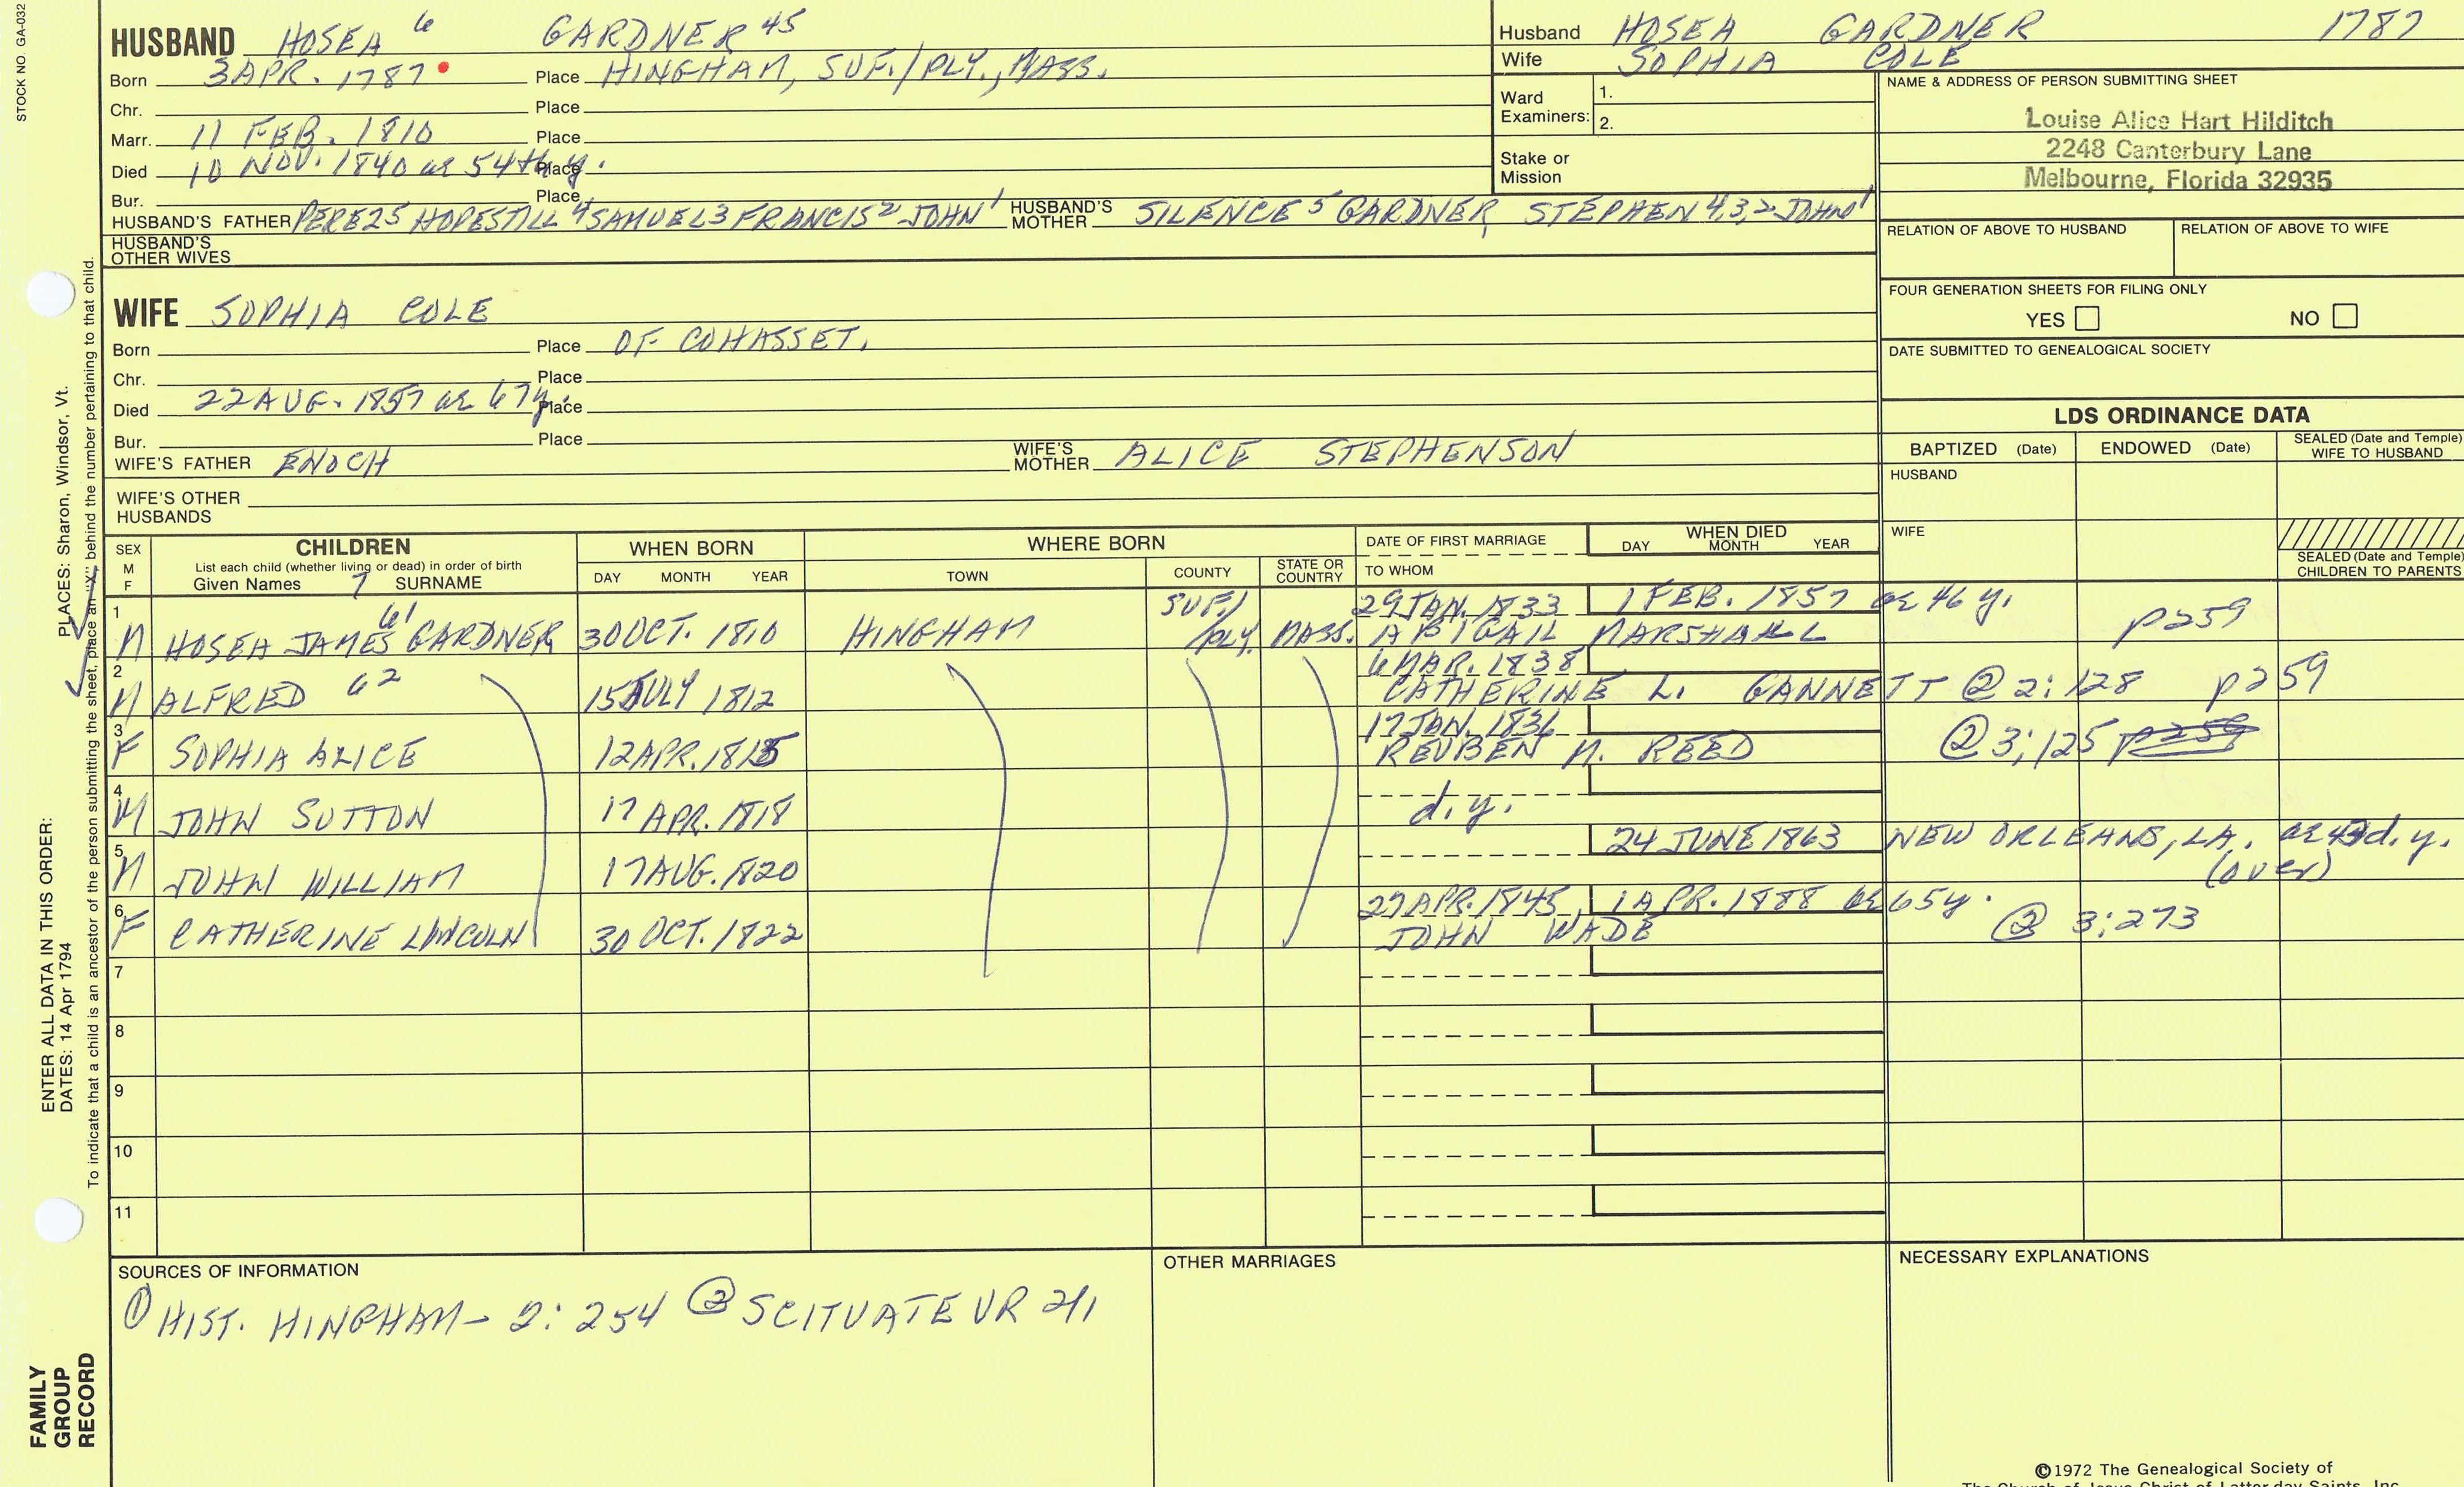 STOCK NO. GA-032
HUSBAND HOSEA 6 GARDNER 45
Born 3 APR. 1787 Place HINGHAM, SUF./PLY., MASS.
Chr. Place
Marr. 11 FEB. 1810 Place
Died 10 NOV. 1840 ae 54th y. Place
Bur. Place
HUSBAND'S FATHER PEREZ5 HOPESTILL 4 SAMUEL3 FRANCIS2 JOHN1 HUSBAND'S MOTHER SILENCE5 GARDNER, STEPHEN 4,3,2 JOHN1
HUSBAND'S OTHER WIVES
Husband HOSEA GARDNER 1787
Wife SOPHIA COLE
Ward Examiners: 1.
2.
Stake or Mission
NAME & ADDRESS OF PERSON SUBMITTING SHEET
Louise Alice Hart Hilditch
2248 Canterbury Lane
Melbourne, Florida 32935
RELATION OF ABOVE TO HUSBAND RELATION OF ABOVE TO WIFE
FOUR GENERATION SHEETS FOR FILING ONLY
YES NO
DATE SUBMITTED TO GENEALOGICAL SOCIETY
WIFE SOPHIA COLE
Born Place OF COHASSET.
Chr. Place
Died 22 AUG. 1857 ae 67y. Place
Bur. Place
WIFE'S FATHER ENOCH WIFE'S MOTHER ALICE STEPHENSON
WIFE'S OTHER HUSBANDS
LDS ORDINANCE DATA
BAPTIZED (Date) ENDOWED (Date) SEALED (Date and Temple) WIFE TO HUSBAND
HUSBAND
WIFE
SEALED (Date and Temple) CHILDREN TO PARENTS
SEX M F CHILDREN WHEN BORN WHERE BORN DATE OF FIRST MARRIAGE WHEN DIED
List each child (whether living or dead) in order of birth
Given Names 7 SURNAME DAY MONTH YEAR TOWN COUNTY STATE OR COUNTRY TO WHOM DAY MONTH YEAR
1 M HOSEA JAMES 61 GARDNER 30 OCT. 1810 HINGHAM SUF./PLY. MASS. 29 JAN. 1833 1 FEB. 1857 ae 46 y.
ABIGAIL MARSHALL p259
2 M ALFRED 62 15 JULY 1812 6 MAR. 1838
CATHERINE L. GANNETT @ 2:128 p259
3 F SOPHIA ALICE 12 APR. 1815 17 JAN. 1836
REUBEN N. REED @ 3:125 p259
4 M JOHN SUTTON 17 APR. 1818 d.y.
5 M JOHN WILLIAM 17 AUG. 1820 24 JUNE 1863 NEW ORLEANS, LA. ae d.y.
(over)
6 F CATHERINE LINCOLN 30 OCT. 1822 27 APR. 1845 1 APR. 1888 ae 65y.
JOHN WADE @ 3:273
7
8
9
10
11
SOURCES OF INFORMATION
① HIST. HINGHAM - 2:254 ② SCITUATE VR 2/1
OTHER MARRIAGES
NECESSARY EXPLANATIONS
PLACES: Sharon, Windsor, Vt.
ENTER ALL DATA IN THIS ORDER:
DATES: 14 Apr 1794
To indicate that a child is an ancestor of the person submitting the sheet, place an "X" behind the number pertaining to that child.
FAMILY
GROUP
RECORD
©1972 The Genealogical Society of
The Church of Jesus Christ of Latter-day Saints, Inc.